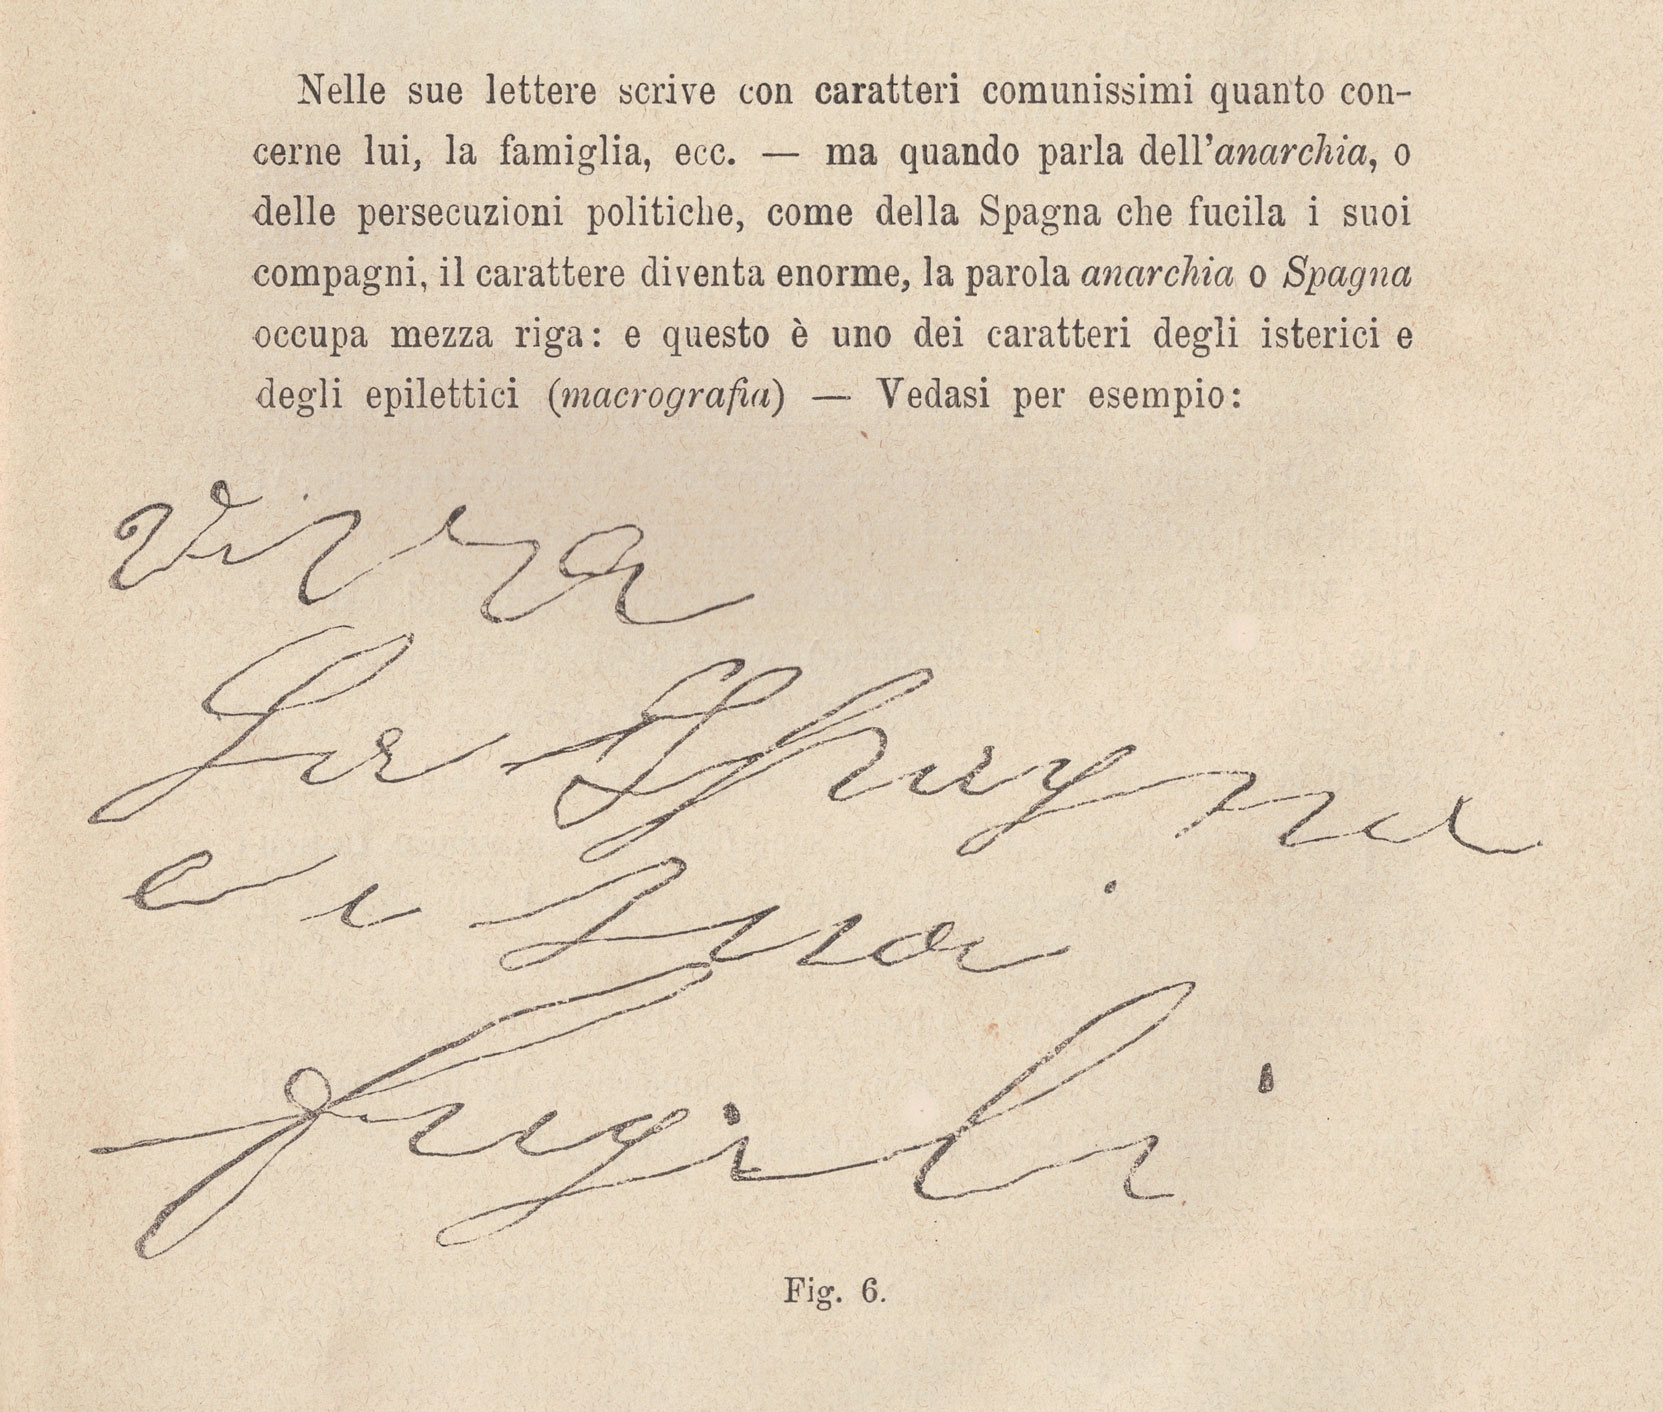 Nelle sue lettere scrive con caratteri comunissimi quanto con-
cerne lui, la famiglia, ecc. — ma quando parla dell'anarchia, o
delle persecuzioni politiche, come della Spagna che fucila i suoi
compagni, il carattere diventa enorme, la parola anarchia o Spagna
occupa mezza riga: e questo è uno dei caratteri degli isterici e
degli epilettici (macrografia) — Vedasi per esempio:
Viva
La Spagna
e i suoi
fugili
Fig. 6.